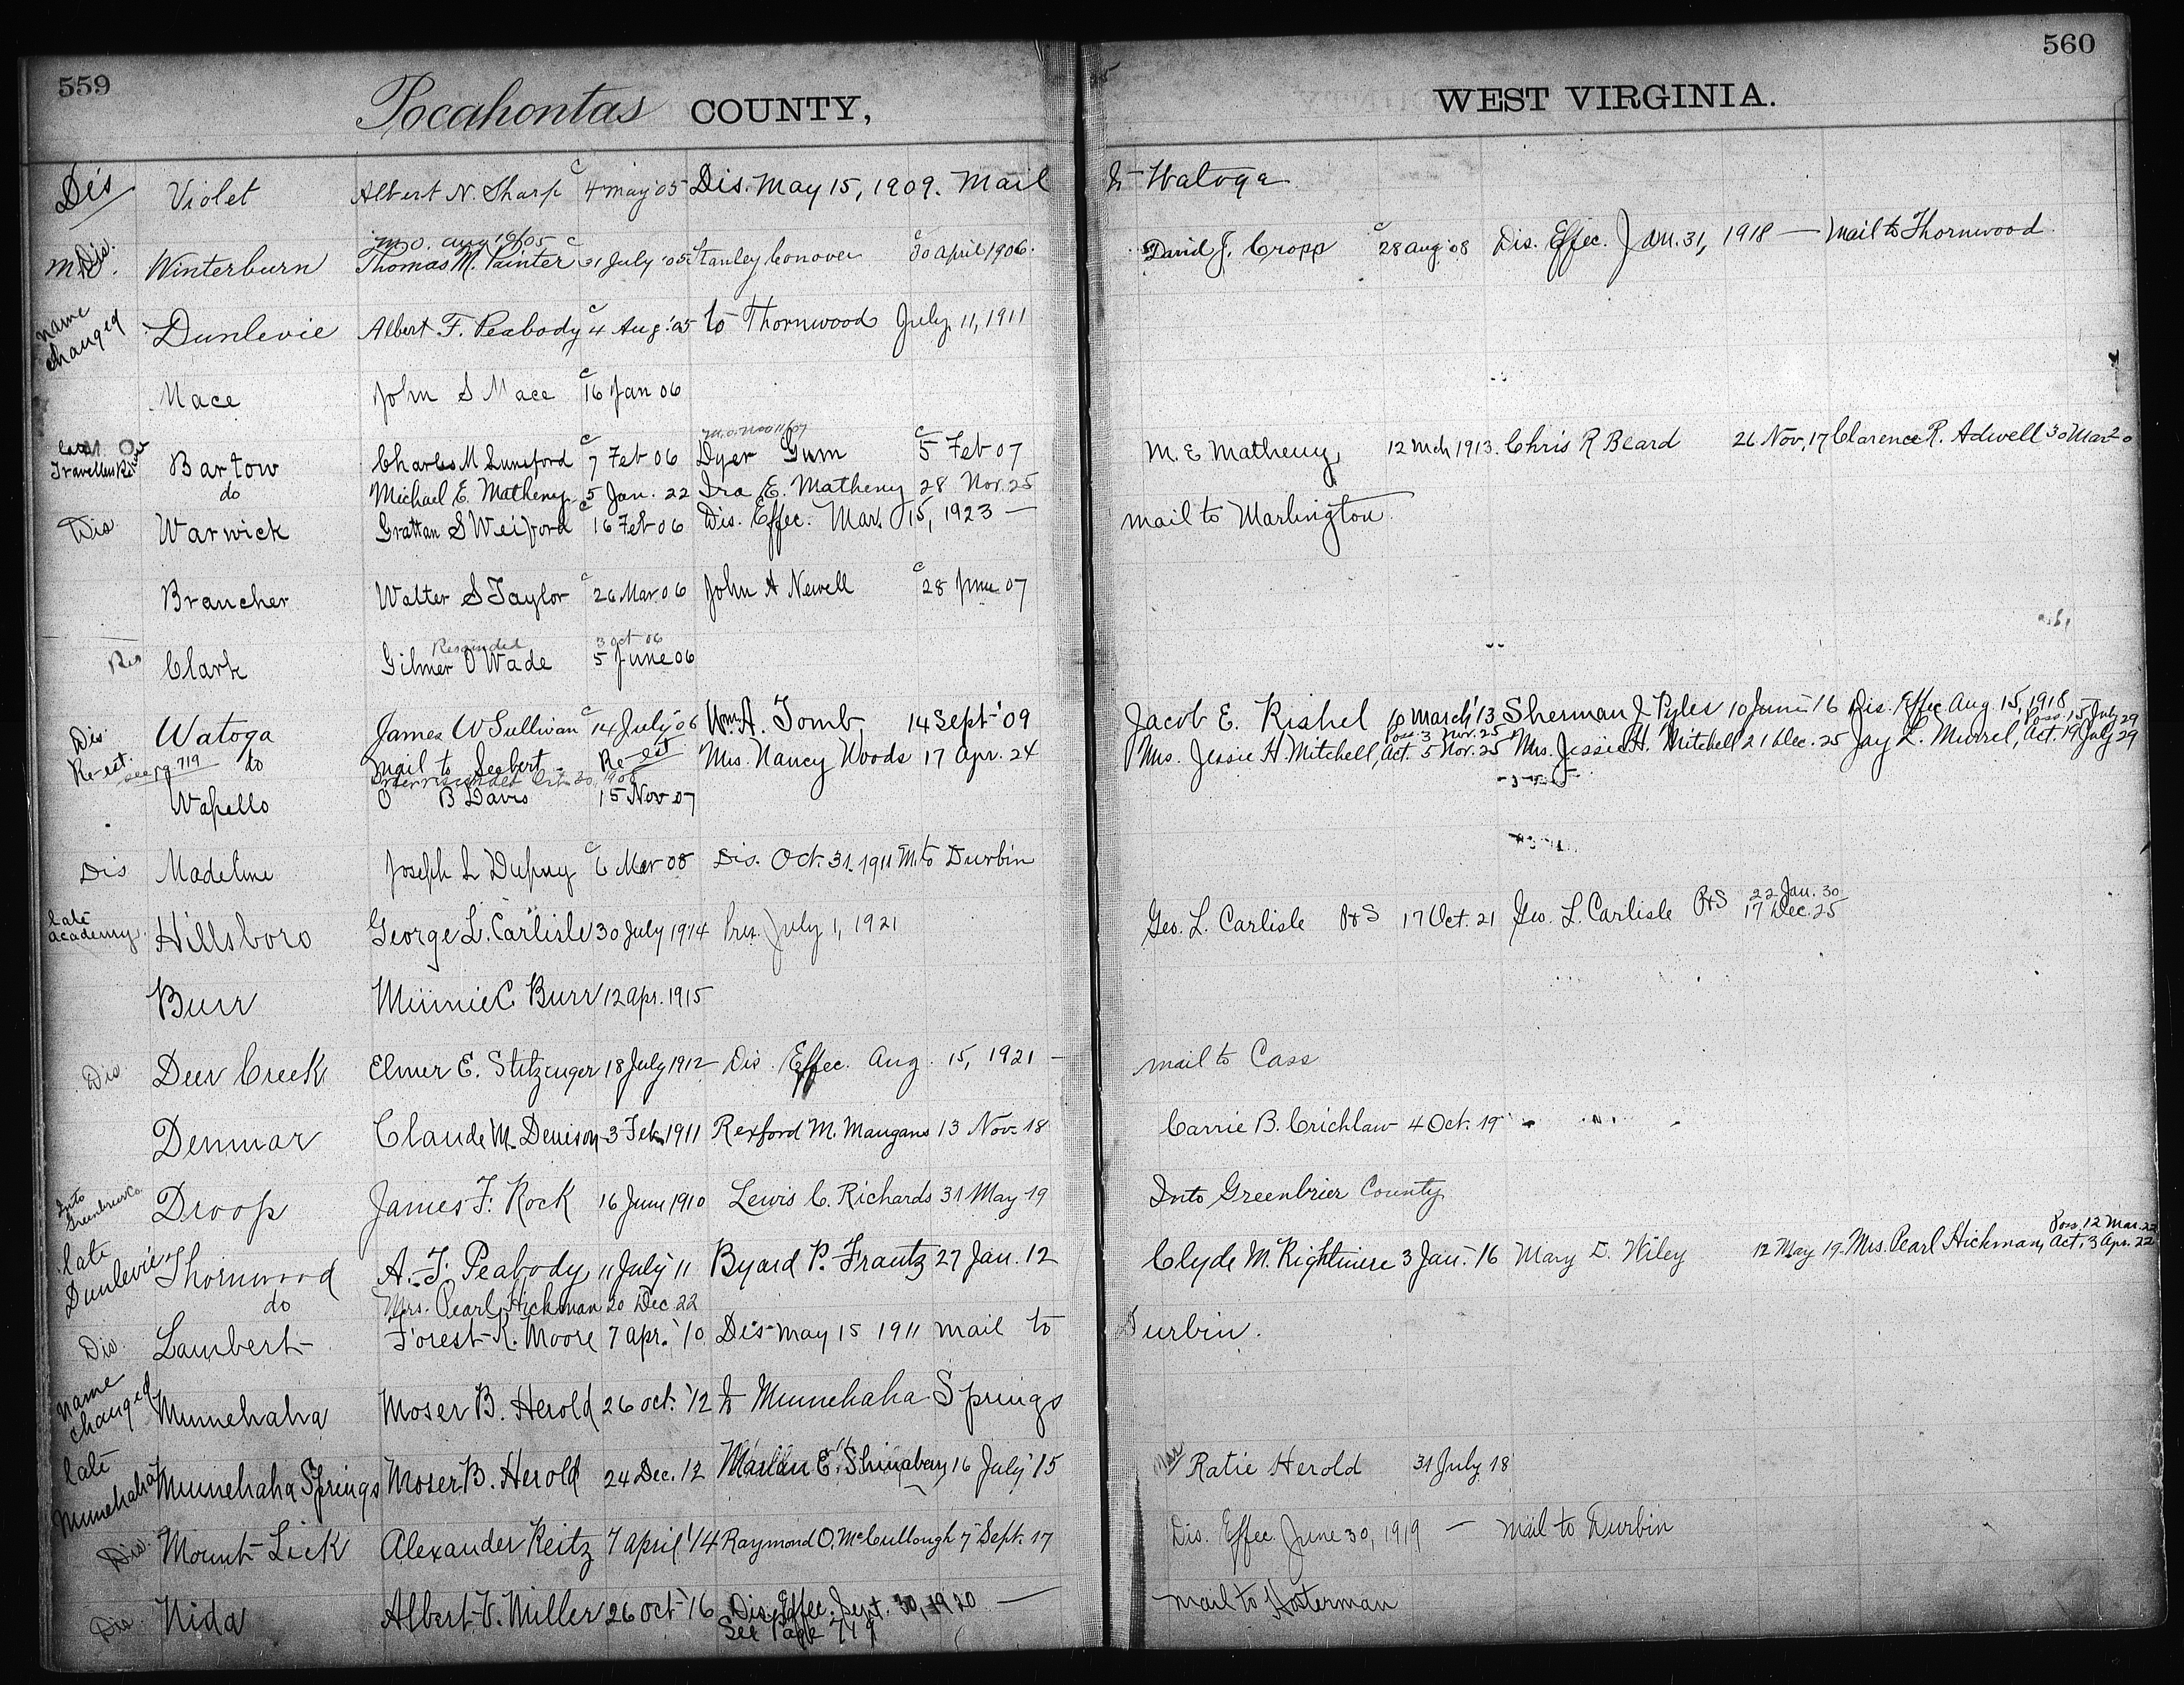 559
560
Pocahontas COUNTY,
WEST VIRGINIA.
Dis Violet Albert N. Sharp c 4 may '05 Dis. May 15, 1909. Mail to Watoga
m.o. aug 16/05
M.O. Dis. Winterburn Thomas M. Painter c 21 July '05 Stanley Conover c 30 April 1906. David J. Cropp c 28 aug '08 Dis. Effec. Jan. 31, 1918 — Mail to Thornwood.
name changed Dunlevie Albert F. Peabody c 4 Aug. '05 to Thornwood July, 11, 1911
Mace John S Mace c 16 Jan 06
m.o. Nov 11/07
late Travellers Repose Bartow Charles M Lunsford c 7 Feb 06 Dyer Gum c 5 Feb 07 M. E Matheny, 12 Mch 1913. Chris R Beard 26 Nov, 17 Clarence R. Adwell 30 Mar 20
do Michael E. Matheny 5 Jan. 22 Ira E. Matheny 28 Nov. 25
Dis Warwick Grattan S Weiford c 16 Feb 06 Dis. Effec. Mar. 15, 1923 — mail to Marlington.
Brancher Walter S Taylor c 26 Mar 06 John A Newell c 28 June 07
Rescinded 3 Oct 06
Res Clark Gilmer O Wade 5 June 06
Dis. Watoga James W Sullivan c 14 July '06 Wm. A. Tomb, 14 Sept '09 Jacob E. Rishel 10 March '13 Sherman J. Pyles 10 June 16 Dis. Effec Aug. 15, 1918
mail to Seebert - Re-est Poss. 3 Nov. 25 Poss. 15 July 29
Re-est. see pg 719 do Mrs. Nancy Woods 17 Apr. 24 Mrs. Jessie H. Mitchell, Act. 5 Nov. 25 Mrs. Jessie H. Mitchell 21 Dec. 25 Jay L. Murrel, Act. 19 July 29
Order rescinded Oct. 30, 1908
Wapello O B Davis 15 Nov 07
Dis Madeline Joseph L Dupuy c 6 Mar 08 Dis. Oct. 31. 1911 M. to Durbin
22 Jan. 30
late academy. Hillsboro George L. Carlisle 30 July 1914 Pres. July 1, 1921 Geo. L. Carlisle P&S 17 Oct. 21 Geo. L. Carlisle P&S 17 Dec. 25
Burr Minnie C Burr 12 apr. 1915
Dis. Deer Creek Elmer E. Stitzinger 18 July 1912 Dis. Effec. Aug. 15, 1921 — mail to Cass
Denmar Claude M. Denison 3 Feb 1911 Rexford M. Maugans 13 Nov. 18 Carrie B. Crichlaw 4 Oct. 19
Into Greenbrier Co. Droop James F. Rock 16 June 1910 Lewis C. Richards 31 May 19 Into Greenbrier County
Poss. 12 Mar. 22
late Dunlevie Thornwood A. F. Peabody, 11 July '11 Byard P. Frantz 27 Jan. 12 Clyde M. Rightmire 3 Jan. 16 Mary D. Wiley 12 May 19 Mrs. Pearl Hickman, Act. 3 Apr. 22
do Mrs. Pearl Hickman 20 Dec 22
Dis. Lambert Forest K. Moore 7 apr. '10 Dis May 15 1911 mail to Durbin.
name changed Minnehaha Moser B. Herold 26 oct. '12 to Minnehaha Springs
late Minnehaha Minnehaha Springs Moser B. Herold 24 Dec. 12 Marlin E. Shinaberry 16 July '15 Mrs Ratie Herold 31 July 18
Dis. Mount Lick Alexander Keitz 7 April '14 Raymond O. McCullough 7 Sept. 17 Dis. Effec. June 30, 1919 — mail to Durbin
Dis. Nida Albert V. Miller 26 oct '16 Dis. Effec. Sept. 30, 1920 — mail to Hosterman
See Page 719